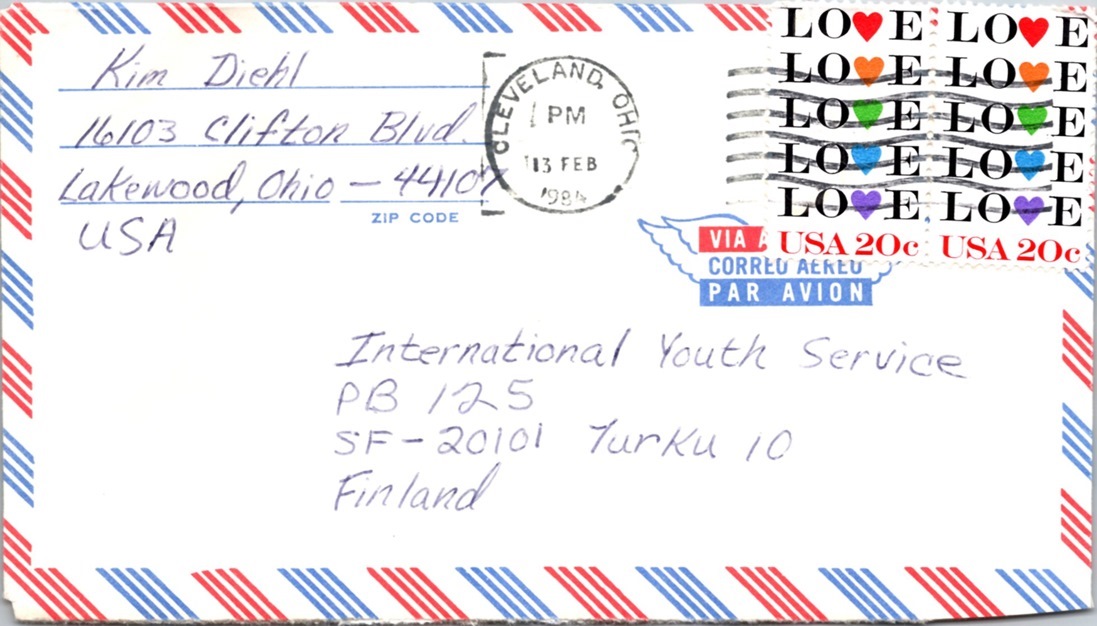 Kim Diehl
16103 Clifton Blvd.
Lakewood, Ohio – 44107
ZIP CODE
USA
CLEVELAND, OHIO
PM
13 FEB
1984
LO♥E LO♥E
LO♥E LO♥E
LO♥E LO♥E
LO♥E LO♥E
LO♥E LO♥E
USA 20c USA 20c
VIA A
CORREO AEREO
PAR AVION
International Youth Service
PB 125
SF-20101 Turku 10
Finland